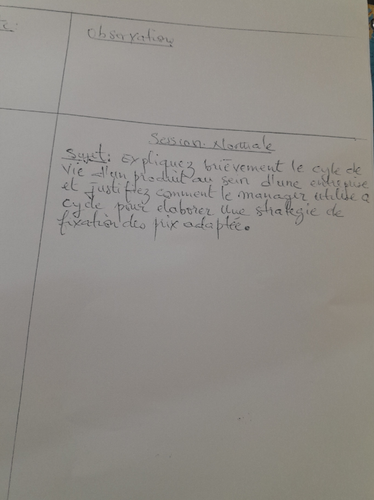 Observation
Session Normale
Sujet: Expliquez brièvement le cycle de
vie d'un produit au sein d'une entreprise
et justifiez comment le manager utilise
cycle pour élaborer une stratégie de
fixation des prix adaptée.